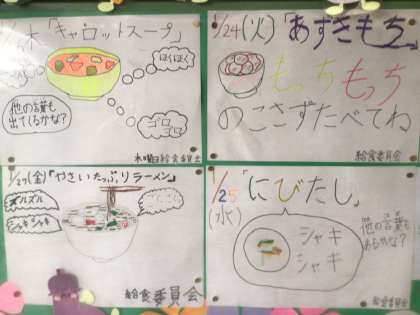 木「キャロットスープ」
ほくほく
他の言葉も
出てくるかな?
ゴロゴロ
木曜日給食委員会
1/24(火)「あずきもち」
もっちもっち
のこさずたべてね
給食委員会
1/27(金)「やさいたっぷりラーメン」
ズルズル
シャキシャキ
給食委員会
1/25「にびたし」
(水)
シャキ
シャキ
他の言葉も
あるかな?
給食委員会